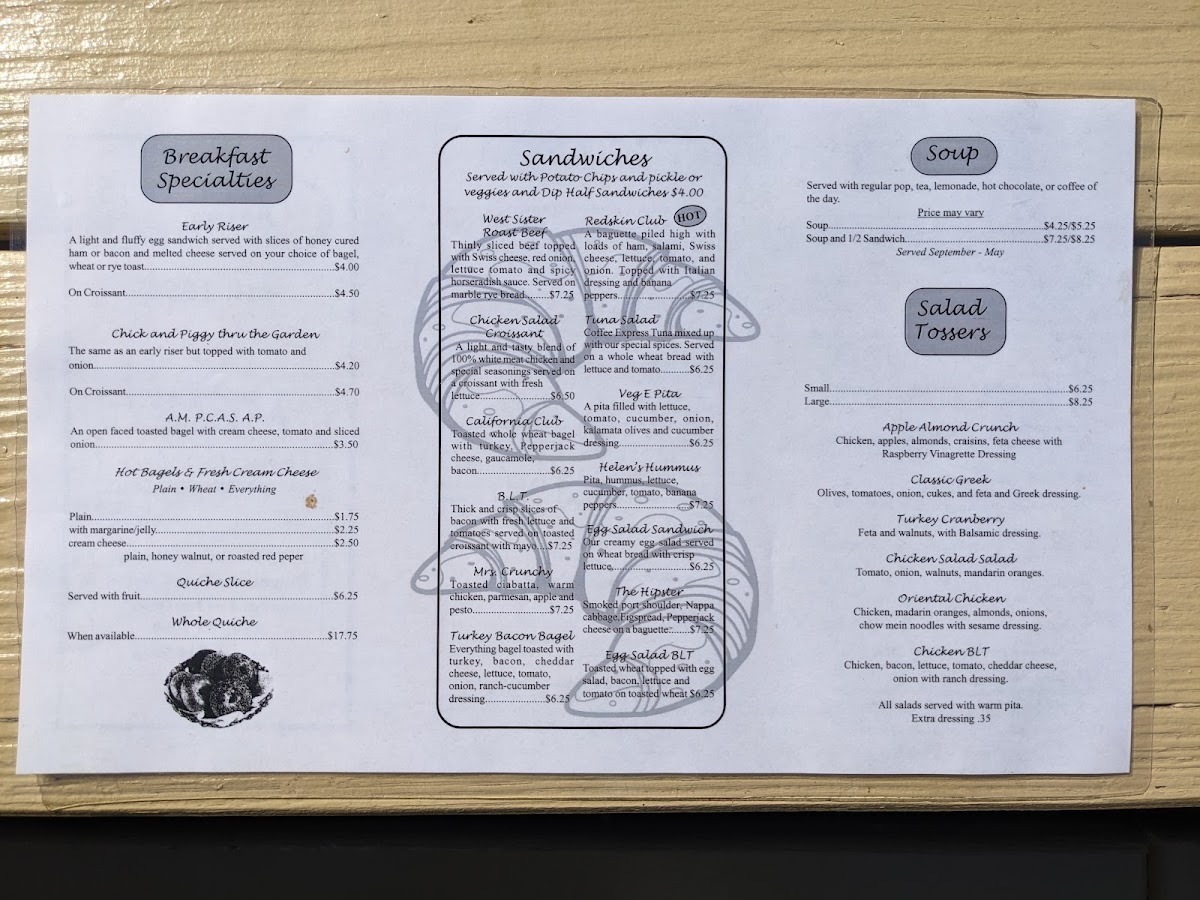 Breakfast
Specialties
Early Riser
A light and fluffy egg sandwich served with slices of honey cured
ham or bacon and melted cheese served on your choice of bagel,
wheat or rye toast....................$4.00
On Croissant....................$4.50
Chick and Piggy thru the Garden
The same as an early riser but topped with tomato and
onion....................$4.20
On Croissant....................$4.70
A.M. P.C.A.S. A.P.
An open faced toasted bagel with cream cheese, tomato and sliced
onion....................$3.50
Hot Bagels & Fresh Cream Cheese
Plain • Wheat • Everything
Plain....................$1.75
with margarine/jelly....................$2.25
cream cheese....................$2.50
plain, honey walnut, or roasted red peper
Quiche Slice
Served with fruit....................$6.25
Whole Quiche
When available....................$17.75
Sandwiches
Served with Potato Chips and pickle or
veggies and Dip Half Sandwiches $4.00
West Sister
Roast Beef
Thinly sliced beef topped
with Swiss cheese, red onion,
lettuce tomato and spicy
horseradish sauce. Served on
marble rye bread........$7.25
Chicken Salad
Croissant
A light and tasty blend of
100% white meat chicken and
special seasonings served on
a croissant with fresh
lettuce....................$6.50
California Club
Toasted whole wheat bagel
with turkey, Pepperjack
cheese, gaucamole,
bacon....................$6.25
B.L.T.
Thick and crisp slices of
bacon with fresh lettuce and
tomatoes served on toasted
croissant with mayo...$7.25
Mrs. Crunchy
Toasted ciabatta, warm
chicken, parmesan, apple and
pesto....................$7.25
Turkey Bacon Bagel
Everything bagel toasted with
turkey, bacon, cheddar
cheese, lettuce, tomato,
onion, ranch-cucumber
dressing....................$6.25
Redskin Club HOT
A baguette piled high with
loads of ham, salami, Swiss
cheese, lettuce, tomato, and
onion. Topped with Italian
dressing and banana
peppers....................$7.25
Tuna Salad
Coffee Express Tuna mixed up
with our special spices. Served
on a whole wheat bread with
lettuce and tomato........$6.25
Veg E Pita
A pita filled with lettuce,
tomato, cucumber, onion,
kalamata olives and cucumber
dressing....................$6.25
Helen's Hummus
Pita, hummus, lettuce,
cucumber, tomato, banana
peppers....................$7.25
Egg Salad Sandwich
Our creamy egg salad served
on wheat bread with crisp
lettuce....................$6.25
The Hipster
Smoked port shoulder, Nappa
cabbage,Figspread, Pepperjack
cheese on a baguette........$7.25
Egg Salad BLT
Toasted wheat topped with egg
salad, bacon, lettuce and
tomato on toasted wheat $6.25
Soup
Served with regular pop, tea, lemonade, hot chocolate, or coffee of
the day.
Price may vary
Soup....................$4.25/$5.25
Soup and 1/2 Sandwich....................$7.25/$8.25
Served September - May
Salad
Tossers
Small....................$6.25
Large....................$8.25
Apple Almond Crunch
Chicken, apples, almonds, craisins, feta cheese with
Raspberry Vinagrette Dressing
Classic Greek
Olives, tomatoes, onion, cukes, and feta and Greek dressing.
Turkey Cranberry
Feta and walnuts, with Balsamic dressing.
Chicken Salad Salad
Tomato, onion, walnuts, mandarin oranges.
Oriental Chicken
Chicken, madarin oranges, almonds, onions,
chow mein noodles with sesame dressing.
Chicken BLT
Chicken, bacon, lettuce, tomato, cheddar cheese,
onion with ranch dressing.
All salads served with warm pita.
Extra dressing .35